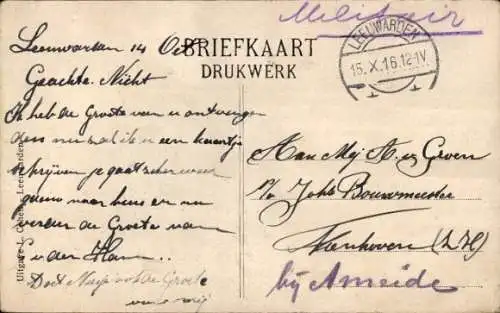 Militair
BRIEFKAART
DRUKWERK
LEEUWARDEN
15.X.16.12-1V.
Leeuwarden 14 Oct
Geachte Nicht
Ik heb de Groete van u ontvangen
dan nu zal ik u een kaartje
schrijven je gaat zeker weer
gauw naar huis en nu
verder de Groete van
G v der Ham..
Doet Meijs ook de Groete
van mij
Aan Mej A. v Gerven
p/a Joh Bouwmeester
Nienhoven (Z H)
bij Ameide
Uitgave L. Cohen, Leeuwarden